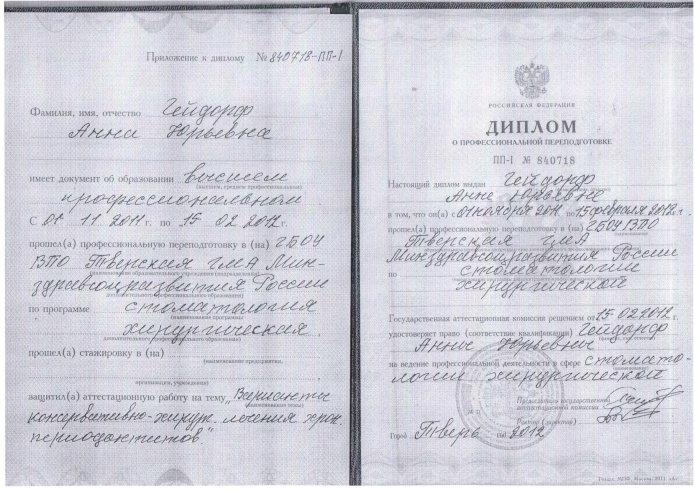 Приложение к диплому № 840718-ПП-I
Фамилия, имя, отчество Гейдорф
Анна Юрьевна
имеет документ об образовании высшем
(высшем, среднем профессиональном)
профессиональном
С 01 11 2011 г. по 15 02 2012 г.
прошел(а) профессиональную переподготовку в (на) ГБОУ
ВПО Тверская ГМА Мин-
здравсоцразвития России
по программе стоматология
хирургическая
прошел(а) стажировку в (на)
(наименование предприятия,
организации, учреждения)
защитил(а) аттестационную работу на тему „Варианты
консервативно-хирург. лечения хрон.
периодонтитов."
РОССИЙСКАЯ ФЕДЕРАЦИЯ
ДИПЛОМ
О ПРОФЕССИОНАЛЬНОЙ ПЕРЕПОДГОТОВКЕ
ПП-I № 840718
Настоящий диплом выдан Гейдорф
Анне Юрьевне
в том, что он(а) с 01 ноября 2011 по 15 февраля 2012 г.
прошел(а) профессиональную переподготовку в (на) ГБОУ ВПО
Тверская ГМА
Минздравсоцразвития России
по стоматологии
хирургической
Государственная аттестационная комиссия решением от 15.02.2012
удостоверяет право (соответствие квалификации) Гейдорф
Анны Юрьевны
на ведение профессиональной деятельности в сфере стомато-
логии хирургической
Председатель государственной
аттестационной комиссии
Ректор (директор)
Город Тверь 2012